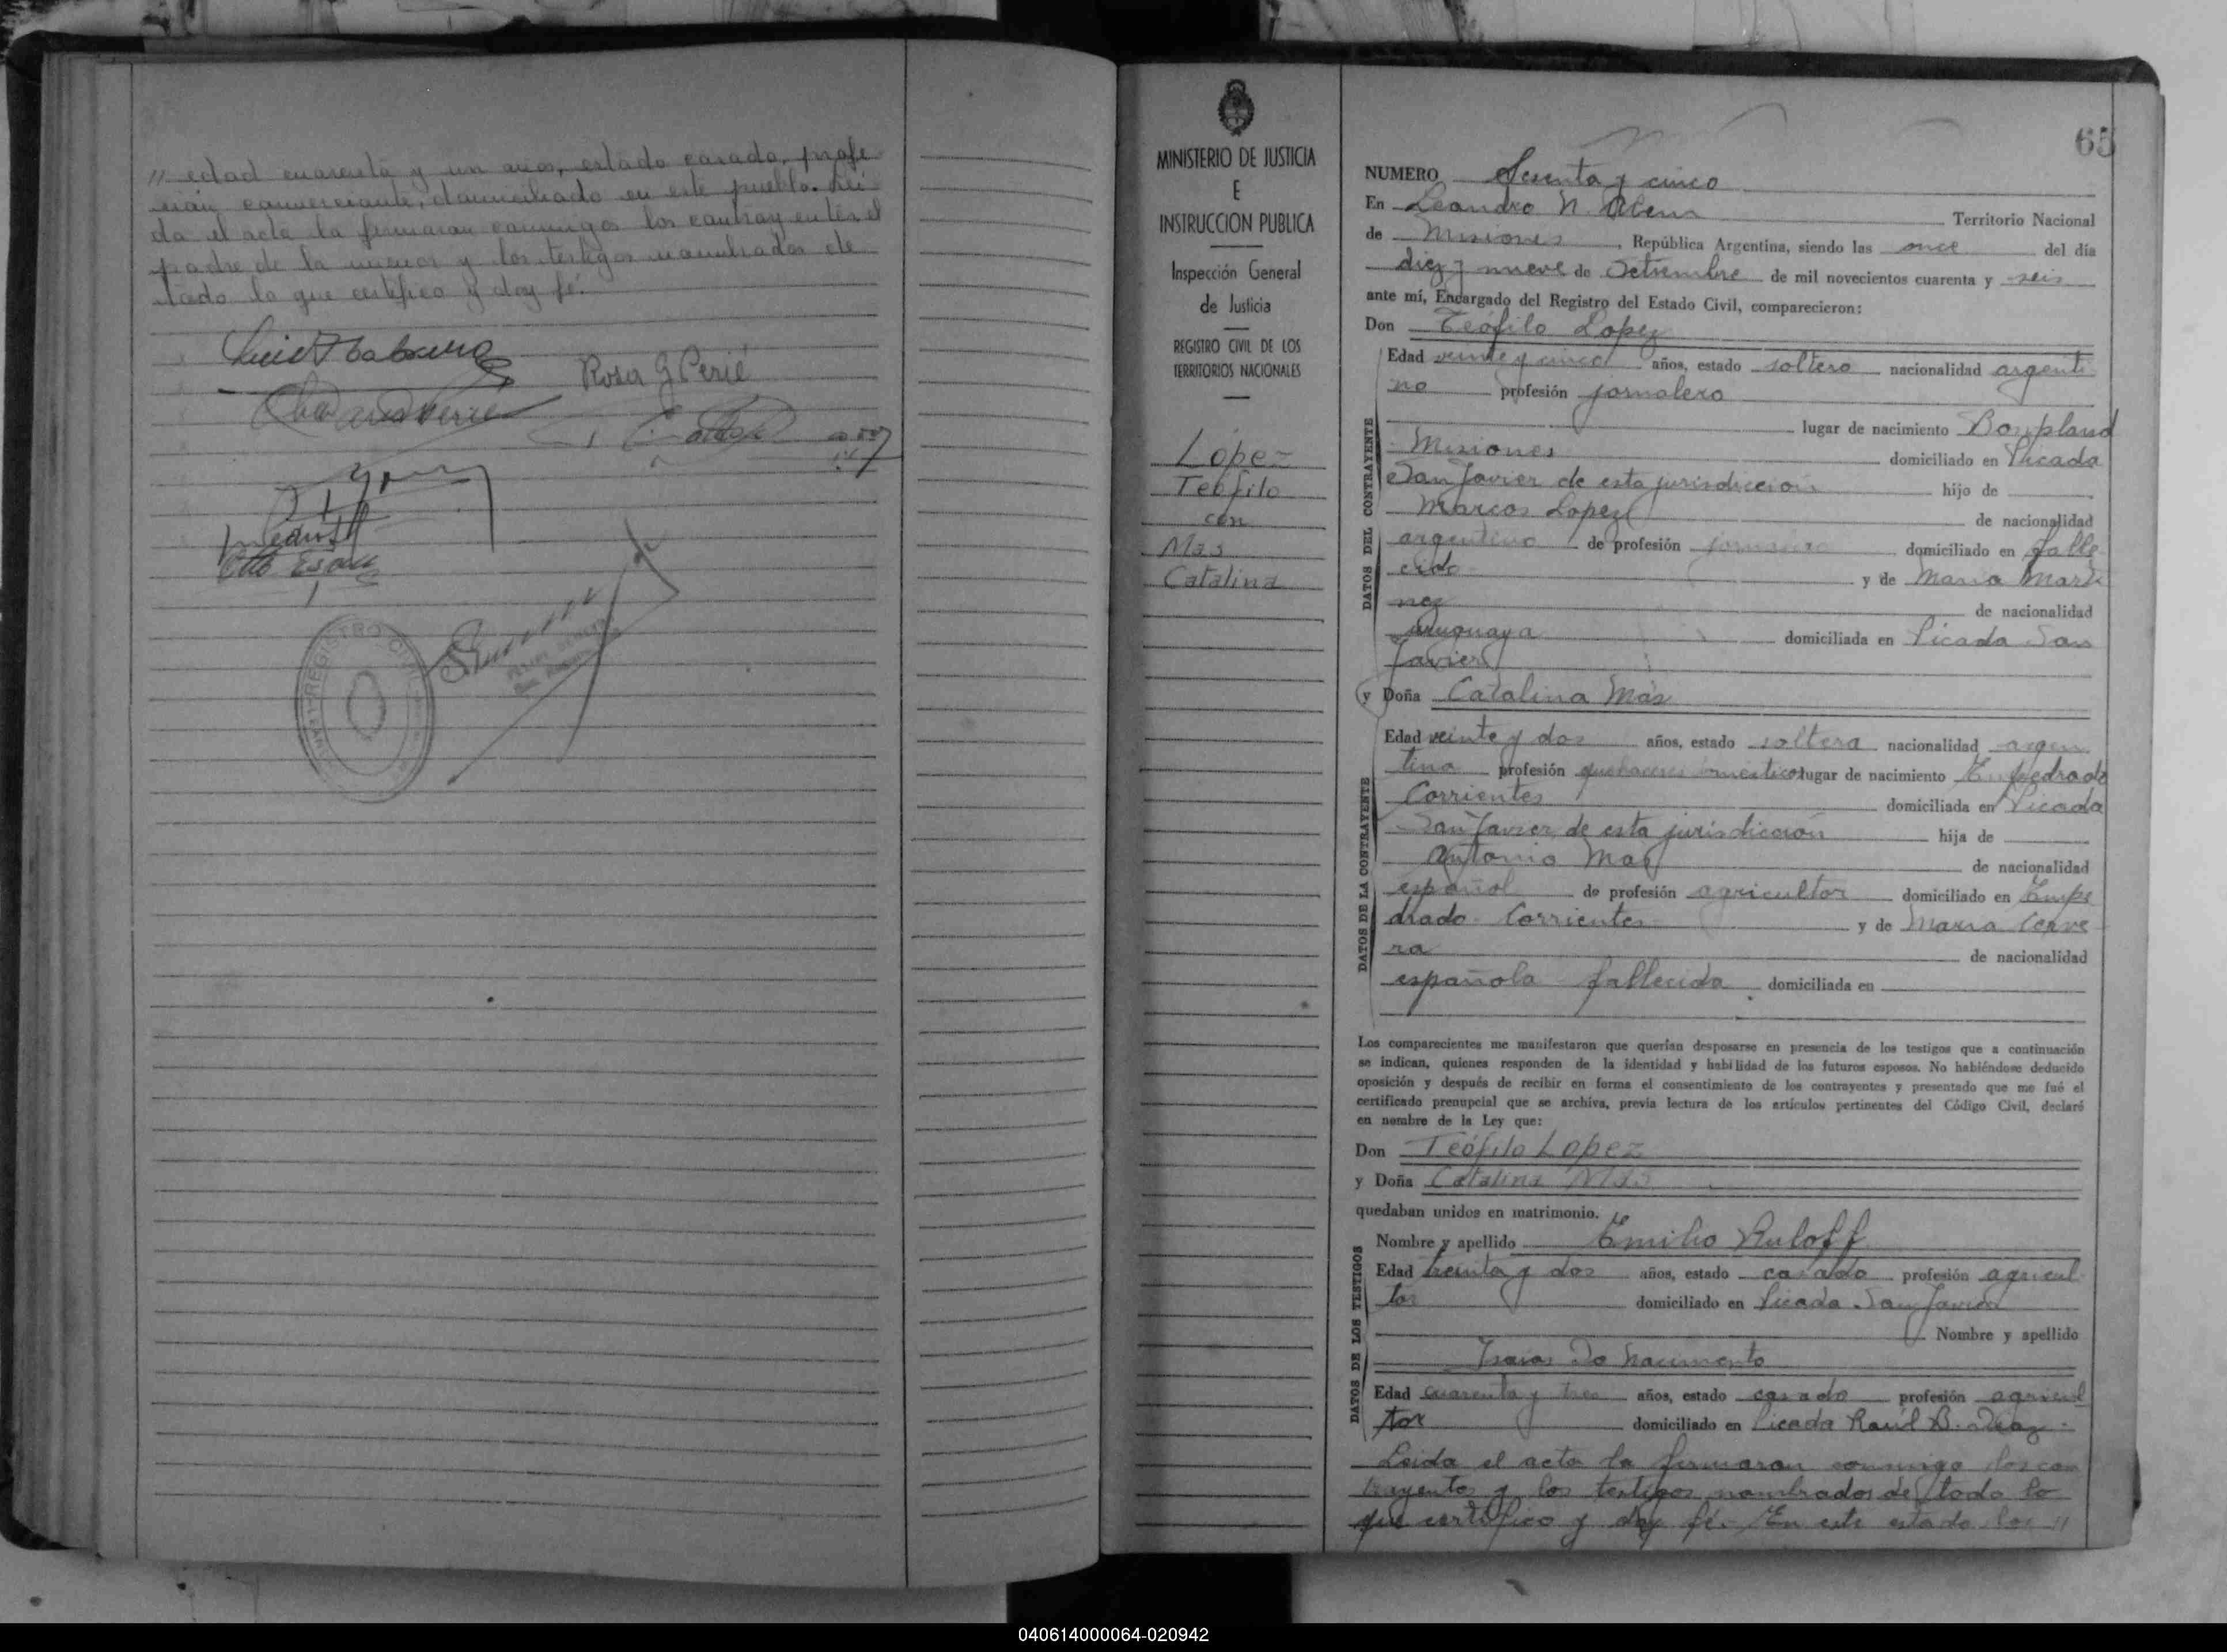 " edad cuarenta y un años, estado casado, profe
sión comerciante, domiciliado en este pueblo. Leí
da el acta la firmaron conmigo los contrayentes el
padre de la menor y los testigos nombrados de
todo lo que certifico y doy fé.
Rosa G Perié
REGISTRO CIVIL
65
MINISTERIO DE JUSTICIA
E
INSTRUCCION PUBLICA
Inspección General
de Justicia
REGISTRO CIVIL DE LOS
TERRITORIOS NACIONALES
López
Teófilo
con
Mas
Catalina
NUMERO Sesenta y cinco
En Leandro N. Alem Territorio Nacional
de Misiones, República Argentina, siendo las once del día
diez y nueve de Setiembre de mil novecientos cuarenta y seis
ante mí, Encargado del Registro del Estado Civil, comparecieron:
Don Teófilo Lopez
DATOS DEL CONTRAYENTE
Edad veinte y cinco años, estado soltero nacionalidad argenti
no profesión jornalero
lugar de nacimiento Bonpland
Misiones domiciliado en Picada
San Javier de esta jurisdicción hijo de
Marcos Lopez de nacionalidad
argentino de profesión jornalero domiciliado en falle
cido y de Maria Marti
nez de nacionalidad
uruguaya domiciliada en Picada San
Javier
y Doña Catalina Más
DATOS DE LA CONTRAYENTE
Edad veinte y dos años, estado soltera nacionalidad argen
tina profesión quehaceres domésticos lugar de nacimiento Empedrado
Corrientes domiciliada en Picada
San Javier de esta jurisdicción hija de
Antonio Mas de nacionalidad
español de profesión agricultor domiciliado en Empe
drado Corrientes y de Maria Cerve
ra de nacionalidad
española fallecida domiciliada en
Los comparecientes me manifestaron que querían desposarse en presencia de los testigos que a continuación
se indican, quienes responden de la identidad y habilidad de los futuros esposos. No habiéndose deducido
oposición y después de recibir en forma el consentimiento de los contrayentes y presentado que me fué el
certificado prenupcial que se archiva, previa lectura de los artículos pertinentes del Código Civil, declaré
en nombre de la Ley que:
Don Teófilo Lopez
y Doña Catalina Mas
quedaban unidos en matrimonio.
DATOS DE LOS TESTIGOS
Nombre y apellido Emilio Ruloff
Edad treinta y dos años, estado casado profesión agricul
tor domiciliado en Picada San Javier
Nombre y apellido
Isaias Do Nacimento
Edad cuarenta y tres años, estado casado profesión agricul
tor domiciliado en Picada Raúl B. Diaz.
Leida el acta la firmaron conmigo los con
trayentes y los testigos nombrados de todo lo
que certifico y doy fé. En este estado los "
040614000064-020942